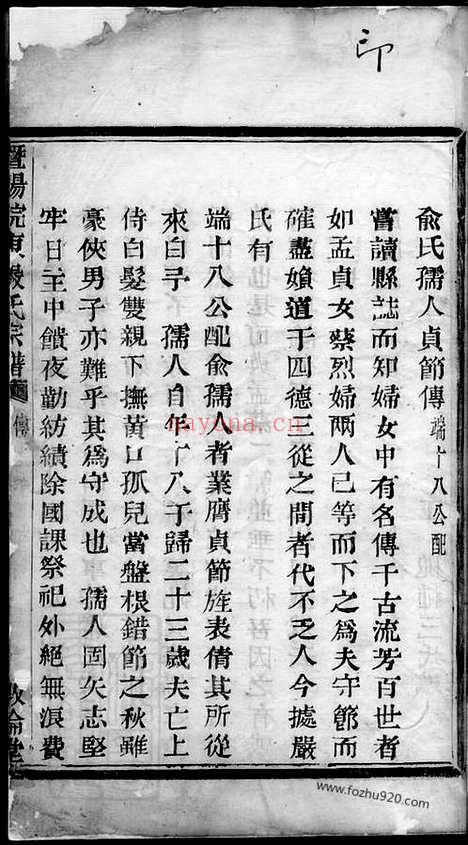 印
俞氏孺人貞節傳 端十八公配
嘗讀縣誌而知婦女中有名傳千古流芳百世者
如孟貞女蔡烈婦兩人已等而下之爲夫守節而
確盡嬪道于四德三從之間者代不乏人今據嚴
氏有
端十八公配俞孺人者業膺貞節旌表倩其所從
來白予 孺人自年十八于歸二十三歲夫亡上
侍白髮雙親下撫黃口孤兒當盤根錯節之秋雖
豪俠男子亦難乎其爲守成也 孺人固矢志堅
牢日主中饋夜勤紡績除國課祭祀外絕無浪費
暨陽院東嚴氏宗譜 傳 敦倫堂
nayuna.cn
www.fozhu920.com